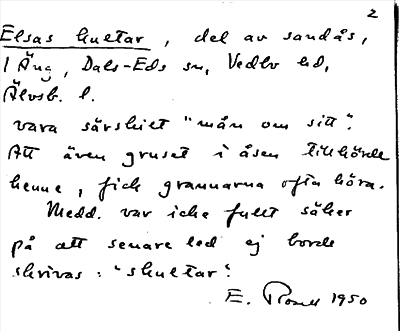 2
Elsas kultar, del av sandås,
I Äng, Dals-Eds sn, Vedbo hd,
Älvsb. l.
vara särskilt "mån om sitt".
Att även gruset i åsen tillhörde
henne, fick grannarna ofta höra.
Medd. var icke fullt säker
på att senare led ej borde
skrivas: "skultar".
E. 1950